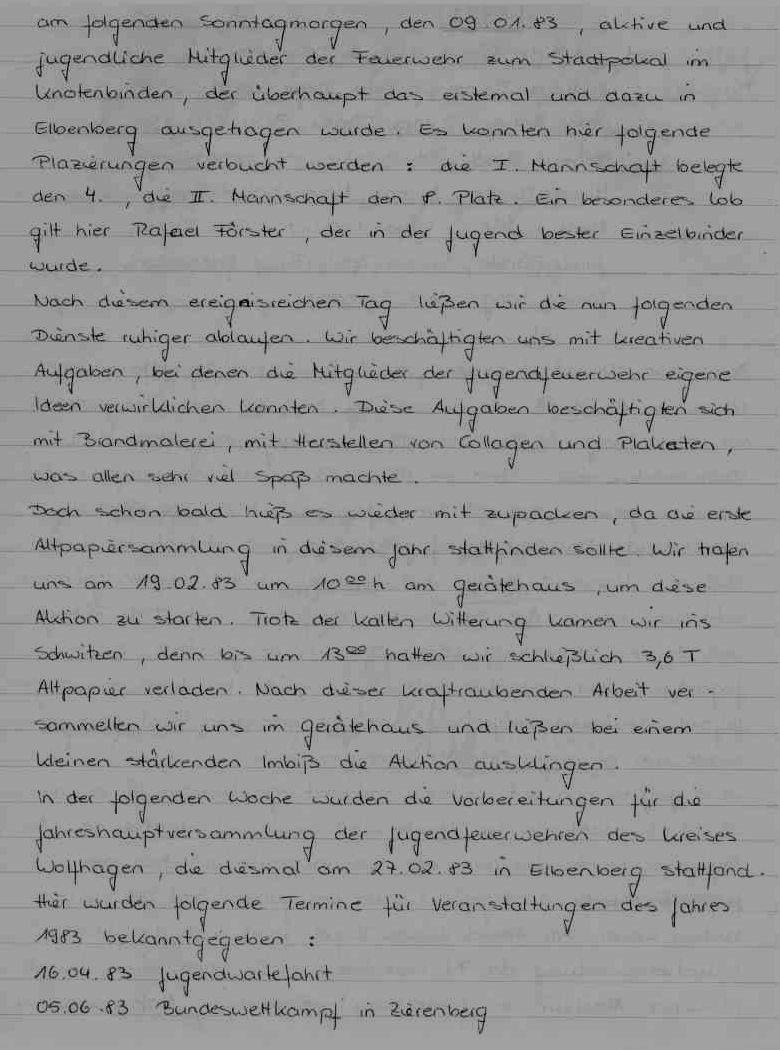 am folgenden Sonntagmorgen, den 09.01.83, aktive und
jugendliche Mitglieder der Feuerwehr zum Stadtpokal im
Knotenbinden, der überhaupt das erstemal und dazu in
Elbenberg ausgetragen wurde. Es konnten hier folgende
Plazierungen verbucht werden: die I. Mannschaft belegte
den 4., die II. Mannschaft den 8. Platz. Ein besonderes Lob
gilt hier Rafael Förster, der in der Jugend bester Einzelbinder
wurde.
Nach diesem ereignisreichen Tag ließen wir die nun folgenden
Dienste ruhiger ablaufen. Wir beschäftigten uns mit kreativen
Aufgaben, bei denen die Mitglieder der Jugendfeuerwehr eigene
Ideen verwirklichen konnten. Diese Aufgaben beschäftigten sich
mit Brandmalerei, mit Herstellen von Collagen und Plakaten,
was allen sehr viel Spaß machte.
Doch schon bald hieß es wieder mit zupacken, da die erste
Altpapiersammlung in diesem Jahr stattfinden sollte. Wir trafen
uns am 19.02.83 um 10⁰⁰h am Gerätehaus, um diese
Aktion zu starten. Trotz der kalten Witterung kamen wir ins
Schwitzen, denn bis um 13⁰⁰ hatten wir schließlich 3,6 T
Altpapier verladen. Nach dieser kraftraubenden Arbeit ver-
sammelten wir uns im Gerätehaus und ließen bei einem
kleinen stärkenden Imbiß die Aktion ausklingen.
In der folgenden Woche wurden die Vorbereitungen für die
Jahreshauptversammlung der Jugendfeuerwehren des Kreises
Wolfhagen, die diesmal am 27.02.83 in Elbenberg stattfand.
Hier wurden folgende Termine für Veranstaltungen des Jahres
1983 bekanntgegeben:
16.04.83 Jugendwartefahrt
05.06.83 Bundeswettkampf in Zierenberg